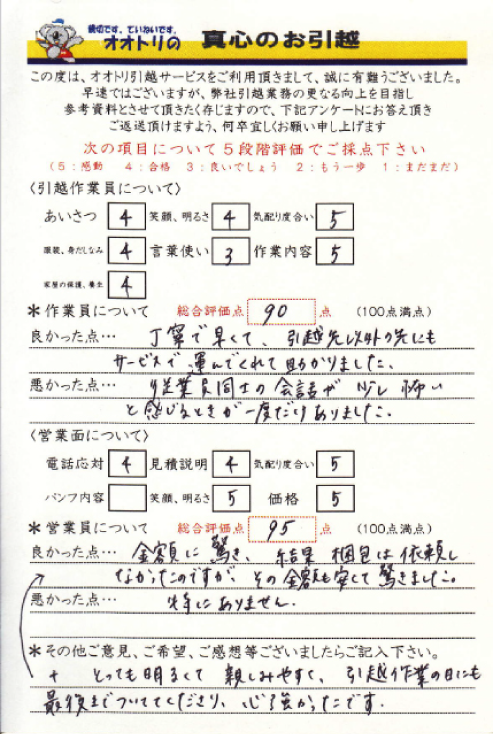 親切です。ていねいです。
オオトリの 真心のお引越
この度は、オオトリ引越サービスをご利用頂きまして、誠に有難うございました。
早速ではございますが、弊社引越業務の更なる向上を目指し
参考資料とさせて頂きたく存じますので、下記アンケートにお答え頂き
ご返送頂けますよう、何卒宜しくお願い申し上げます
次の項目について5段階評価でご採点下さい
(5:感動 4:合格 3:良いでしょう 2:もう一歩 1:まだまだ)
〈引越作業員について〉
あいさつ 4 笑顔、明るさ 4 気配り度合い 5
服装、身だしなみ 4 言葉使い 3 作業内容 5
家屋の保護、養生 4
*作業員について 総合評価点 90 点 (100点満点)
良かった点… 丁寧で早くて、引越先以外の先にも
サービスで運んでくれて助かりました。
悪かった点… 従業員同士の会話が 少し 怖い
と感じるときが一度だけありました。
〈営業面について〉
電話応対 4 見積説明 4 気配り度合い 5
パンフ内容 笑顔、明るさ 5 価格 5
*営業員について 総合評価点 95 点 (100点満点)
良かった点… 金額に驚き、結果 梱包は依頼し
なかったのですが、その金額も安くて驚きました。
悪かった点… 特にありません。
*その他ご意見、ご希望、ご感想等ございましたらご記入下さい。
+ とっても明るくて 親しみやすく、引越作業の日にも
最後までついててくださり、心強かったです。